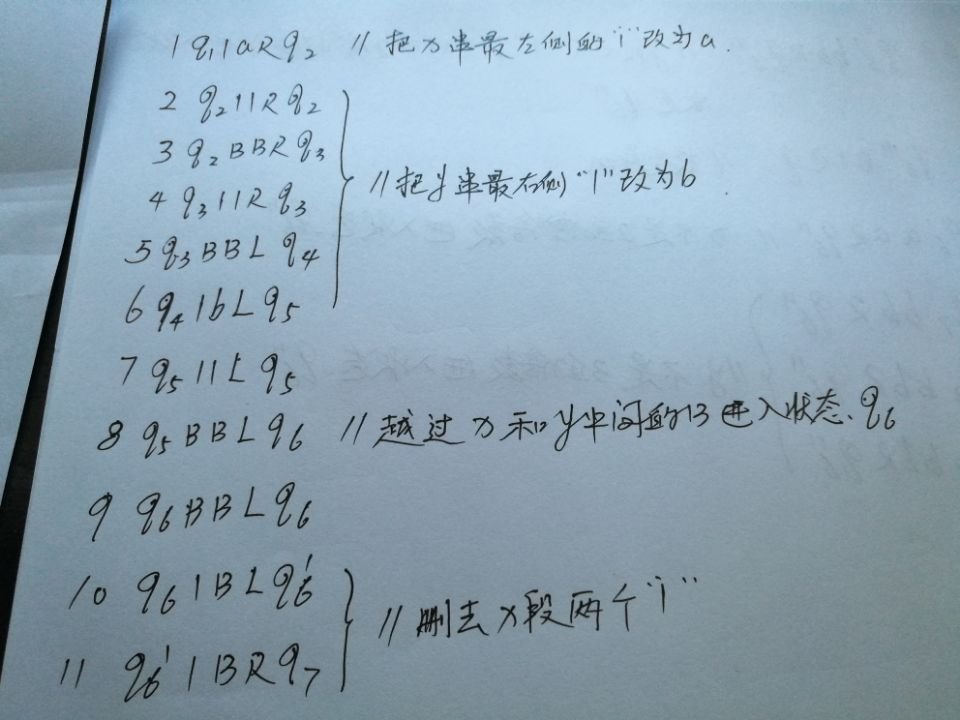 1 q₁1aRq₂ // 把x串最左侧的"1"改为a.
2 q₂11Rq₂
3 q₂BBRq₃
4 q₃11Rq₃ // 把y串最右侧"1"改为b.
5 q₃BBLq₄
6 q₄1bLq₅
7 q₅11Lq₅
8 q₅BBLq₆ // 越过x和y中间的B进入状态q₆
9 q₆BBLq₆
10 q₆1BLq₆'
11 q₆'1BRq₇ // 删去x段两个"1"